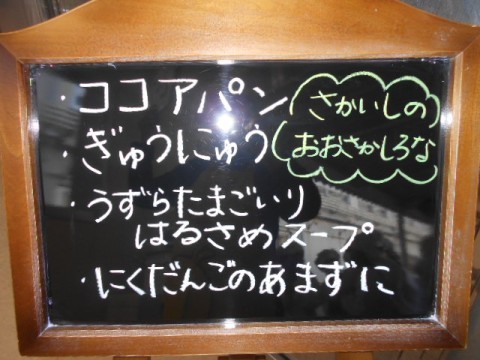 ・ココアパン
・ぎゅうにゅう
・うずらたまごいり
はるさめスープ
・にくだんごのあまずに
さかいしの
おおさかしろな